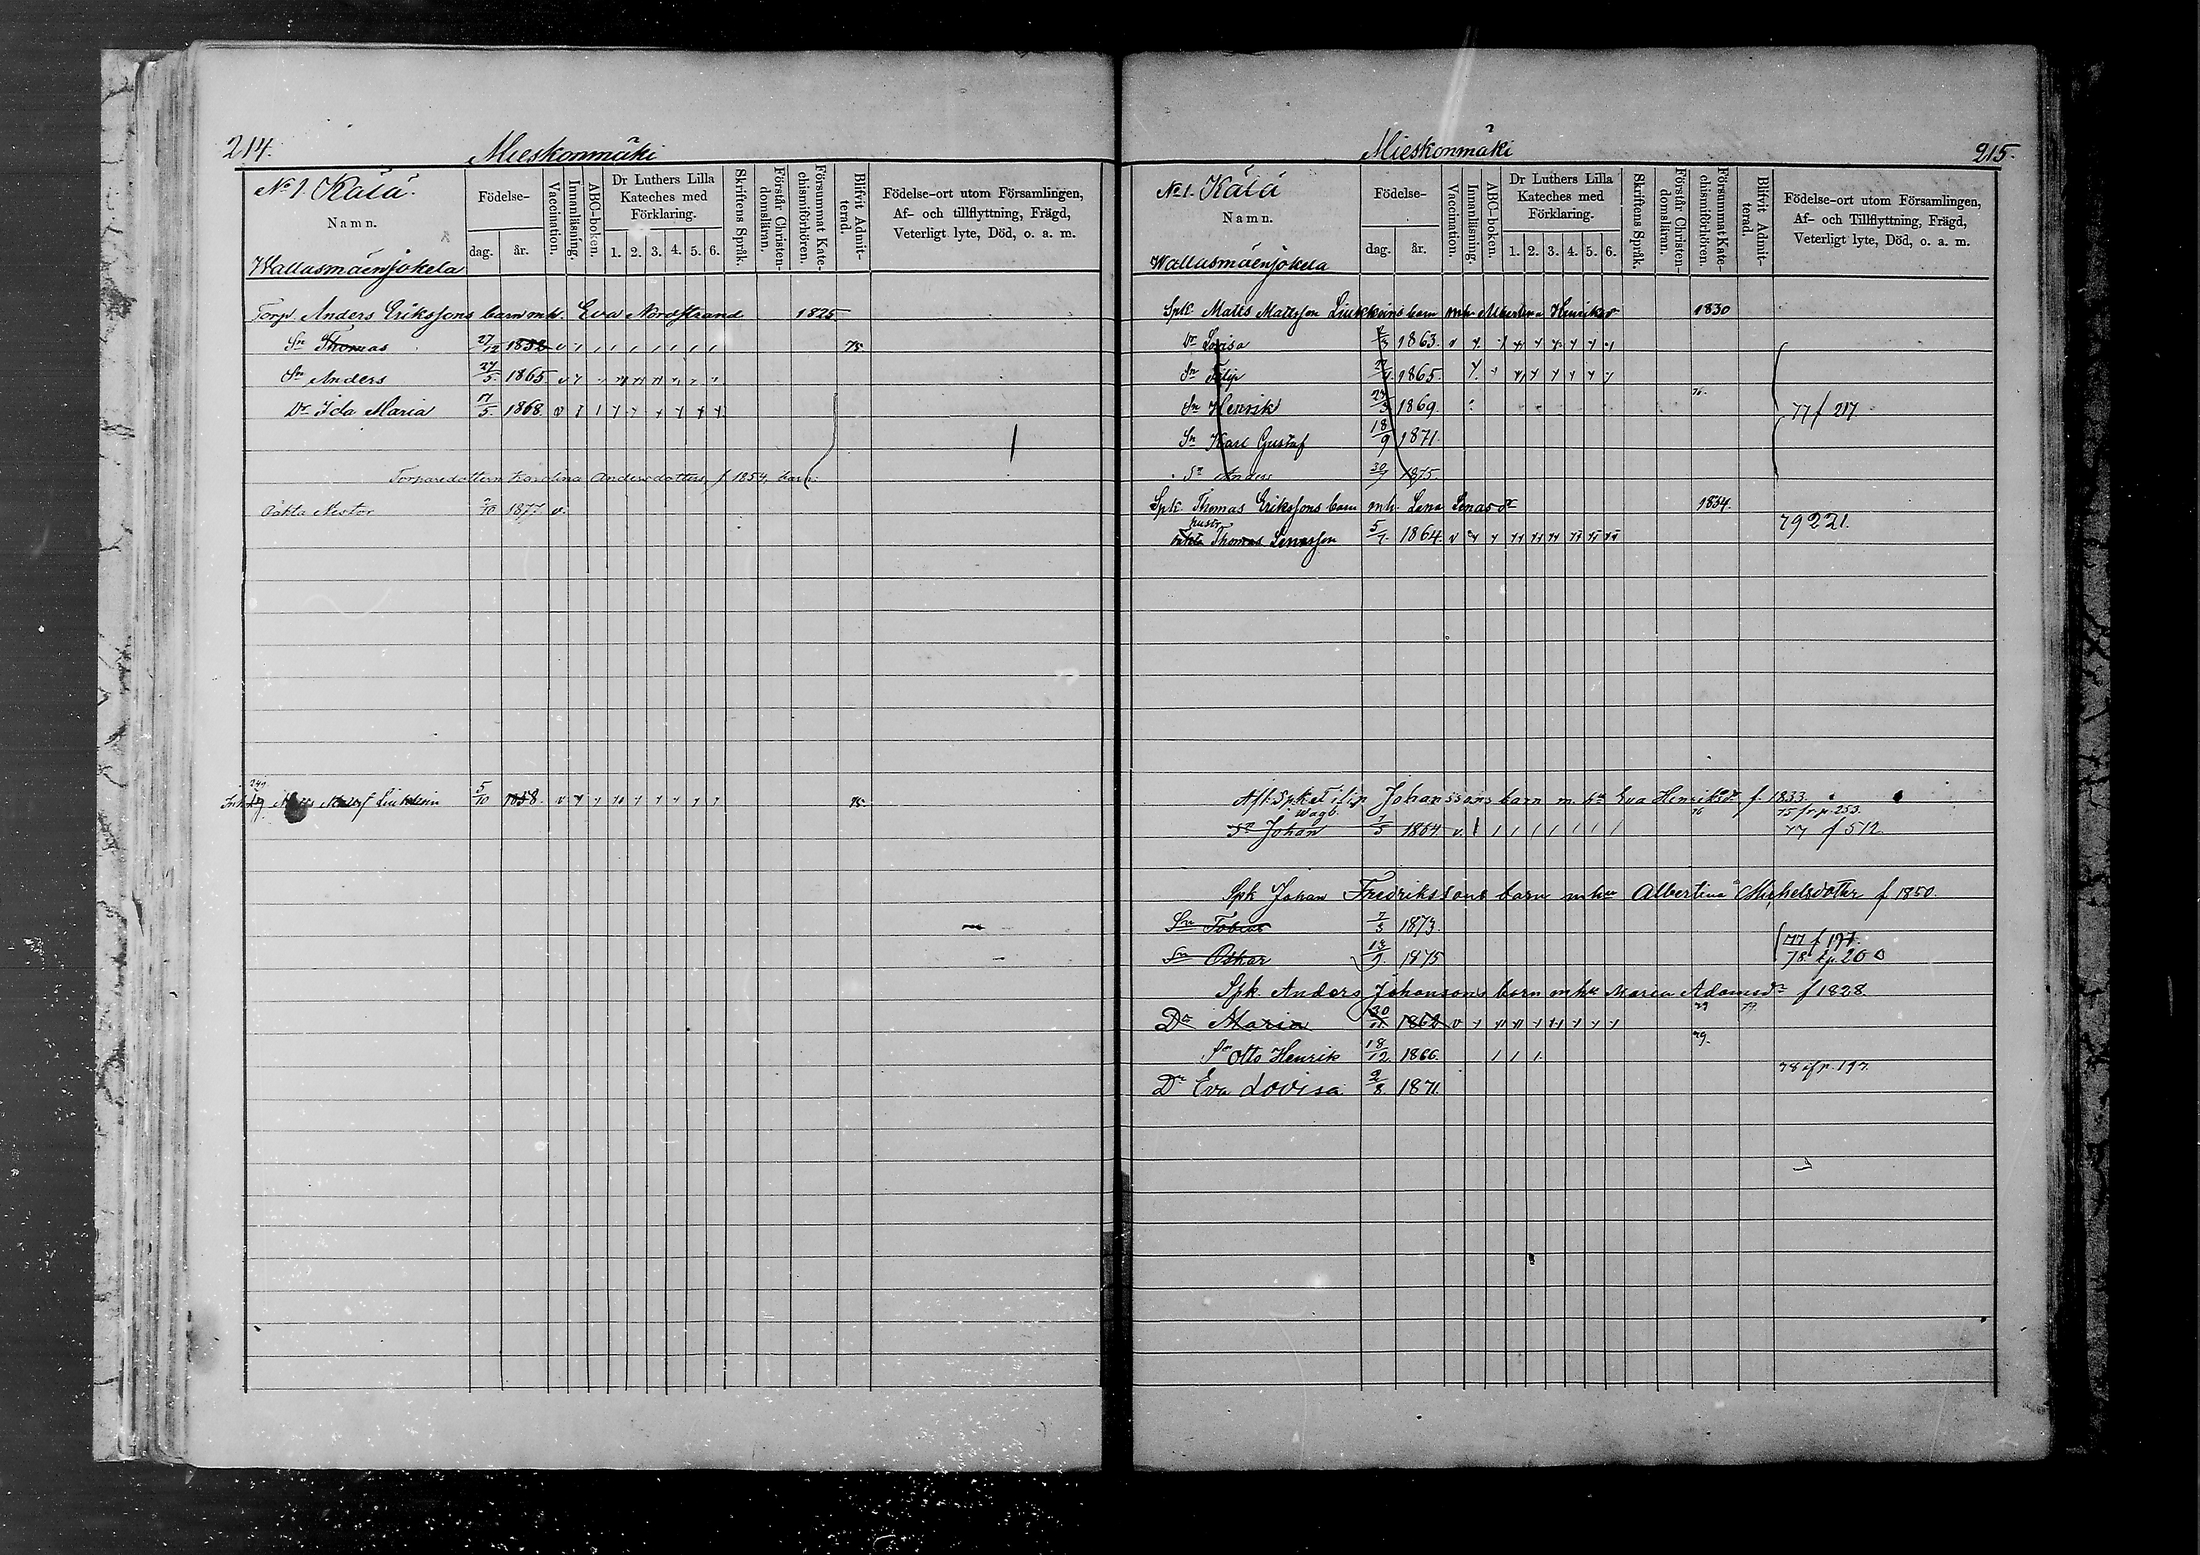 214.
Mieskonmäki
No 1. Kälä.
Namn.
Wallasmäenjokela
Födelse-
dag. år.
Vaccination.
Innanläsning.
ABC-boken.
Dr Luthers Lilla Kateches med Förklaring.
1. 2. 3. 4. 5. 6.
Skriftens Språk.
Förstår Christendomsläran.
Försummat Katechismiförhören.
Blifvit Admitterad.
Födelse-ort utom Församlingen, Af- och tillflyttning, Frägd, Veterligt lyte, Död, o. a. m.
Torp. Anders Erikssons barn mh. Eva Nordstrand 1825
Sn Thomas 27/12 1858 75.
Sn Anders 27/5. 1865
Dr Ida Maria 17/5. 1868
Torparedottern Karolina Andersdotters f 1854, barn:
Oäkta Nestor 2/10 1877. v.
249
Matts Liukkoin 5/10 1858. 75.
Mieskonmäki
215.
No 1. Kälä
Namn.
Wallasmäenjokela
Födelse-
dag. år.
Vaccination.
Innanläsning.
ABC-boken.
Dr Luthers Lilla Kateches med Förklaring.
1. 2. 3. 4. 5. 6.
Skriftens Språk.
Förstår Christendomsläran.
Försummat Katechismiförhören.
Blifvit Admitterad.
Födelse-ort utom Församlingen, Af- och Tillflyttning, Frägd, Veterligt lyte, Död, o. a. m.
Spk Matts Mattsson Liukkoins barn mh Albertina Henriksdr 1830
Dr Lovisa 1863.
Sn Filip 1865.
Sn Henrik 24/3 1869. 76. 77 f 217
Sn Karl Gustaf 18/9 1871.
Sn Anders 30/7 1875.
Spk Thomas Erikssons barn mh. Lena Lenasdr 1834.
hustr
oäkta Thomas Lenasson 5/7. 1864. 79 221.
Aft. Spk Filip Johanssons barn m. hu Eva Henriksdr f. 1833
76 75 fr p. 253.
Sn Johan 7/5 1864. v. 77 f 512.
Spk Johan Fredrikssons barn mhu Albertina Michelsdotter f 1850.
Sn Tobias 7/3 1873. 77 f 197.
Sn Oskar 13/9. 1875 78 fp. 200
Spk. Anders Johanssons barn mhu Maria Adamsdr f 1828.
Dr Maria 30/11 1862 79 79.
Sn Otto Henrik 18/12 1866. 79.
78 af p. 197.
Dr Eva Lovisa 2/8 1871.